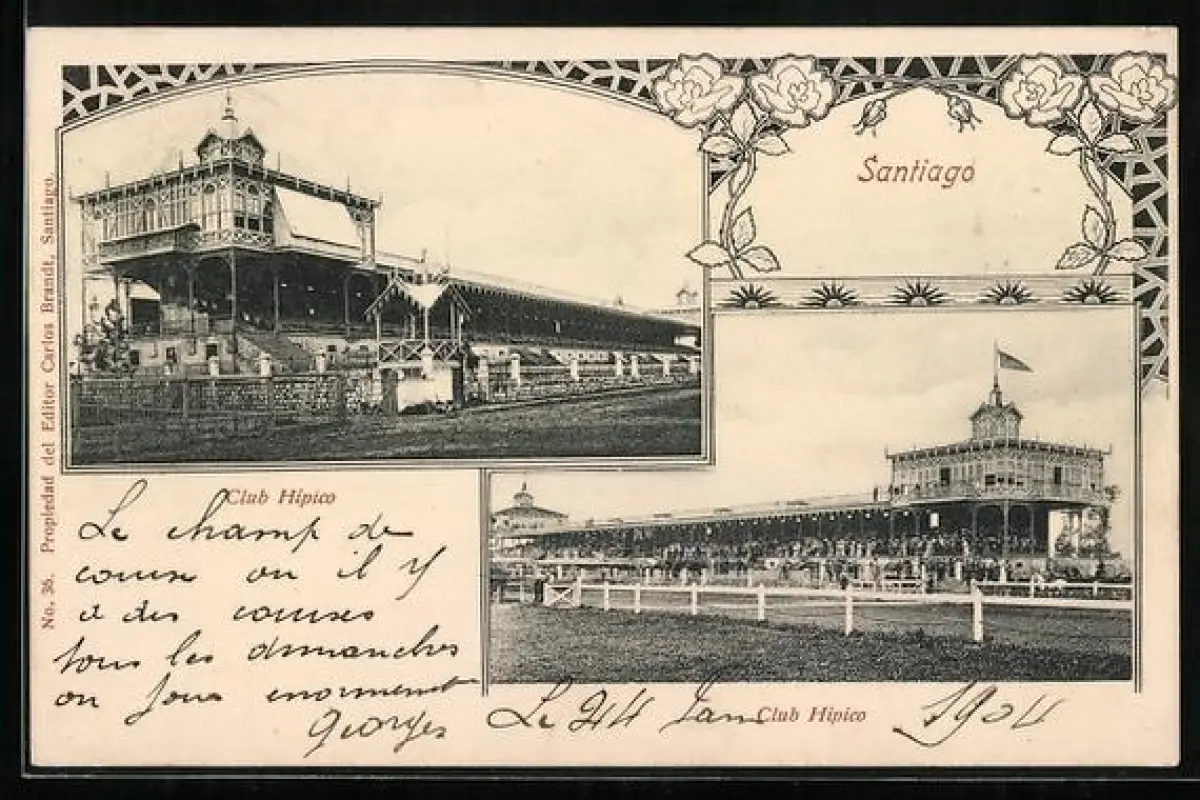 Santiago
No. 36. Propiedad del Editor Carlos Brandt, Santiago.
Club Hípico
Le champ de
course ou il y
a des courses
tous les dimanches
on joue enormement
Georges
Le 24 Jan 1904
Club Hípico